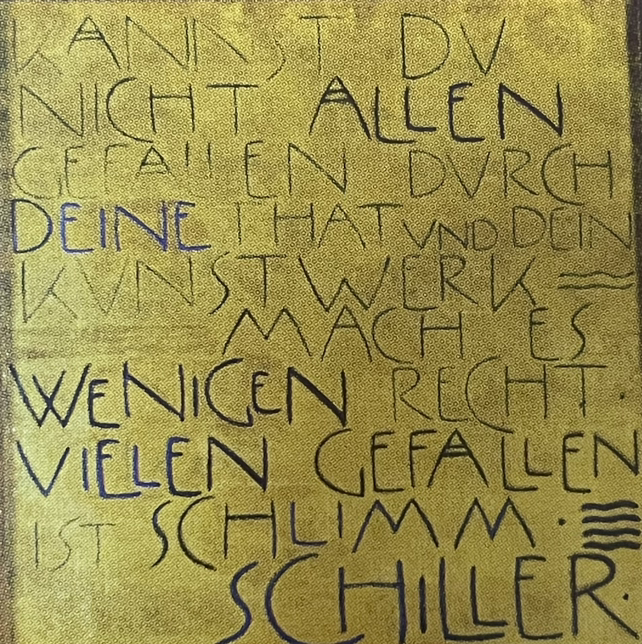 KANNST DV
NICHT ALLEN
GEFALLEN DVRCH
DEINE THAT VND DEIN
KVNSTWERK =
MACH ES
WENIGEN RECHT ·
VIELEN GEFALLEN
IST SCHLIMM ·
SCHILLER·